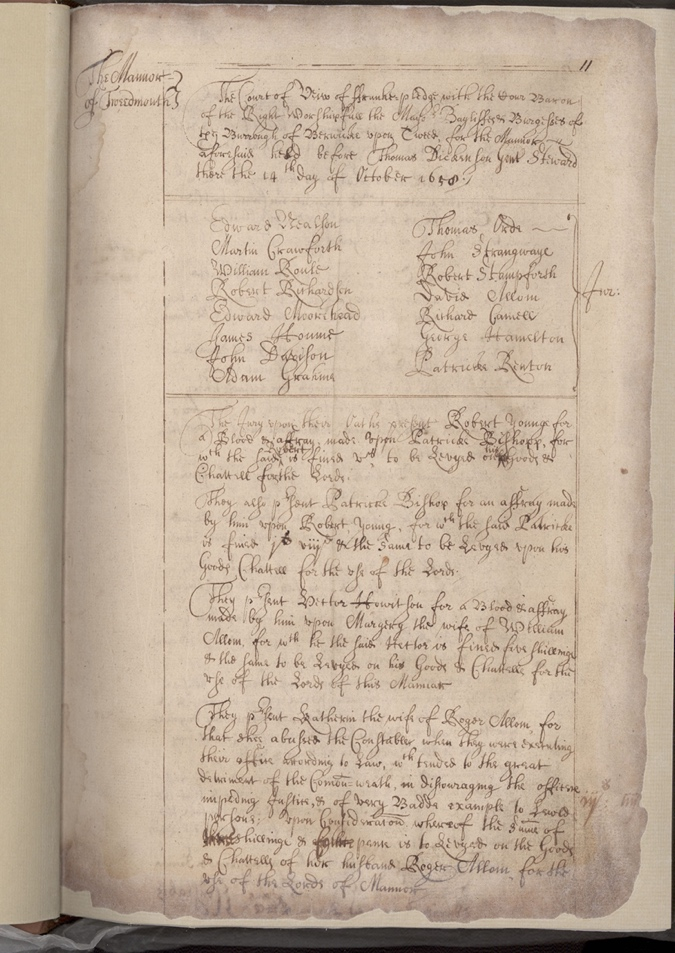 11
The Mannor
of Tweedmouth
The Court of View of ffrankepledge with the Cour Baron
of the Right Worshipfull the Maior Bayliffes & Burgesses of
the Burrough of Berwicke upon Tweed, for the Mannor
aforesaid held before Thomas Dickenson Gent Steward
there the 14th day of October 1658
Edward Nealson
Martin Crawforth
William Roule
Robert Richardson
Edward Moorehead
James Houme
John Davison
Adam Grahme
Thomas Orde
John Strangwaye
Robert Stampforth
David Allom
Richard Camell
George Hamelton
Patricke Renton
Jur:
The Jury upon their Oathe present Robert Younge for
a Blood & affray made upon Patricke Bishopp, for
wth the said Robert is fined vs to be Levyed on his Goods &
Chattell for the Lords.
They also psent Patricke Bishop for an affray made
by him upon Robert Young, for wth the said Patricke
is fined viijd & the same to be Levyed upon his
Goods Chattell for the use of the Lords.
They psent Hector Howitson for a Blood & affray
made by him upon Margery the wife of William
Allom, for wth he the said Hector is fined five shillings
& the same to be Levyed on his Goods & Chattells for the
use of the Lords of this Mannor
They psent Katherin the wife of Roger Allom, for
that shee abused the Constables when they were executing
their office according to Law, wth tended to the great
detriment of the Comon-wealth, in discouraging the officers
impeding Justice, & of very Badde example to Lewd
persons: upon Consideration whereof the Summe of
shillings & is to Levyed on the Goods
& Chattells of her husband Roger Allom, for the
use of the Lords of Mannor